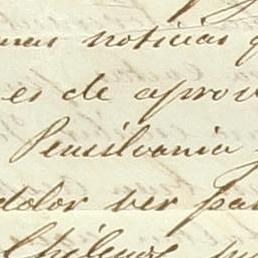 mas noticias q
es de aprov
Pensilvania
dolor ver pa
Chilenos